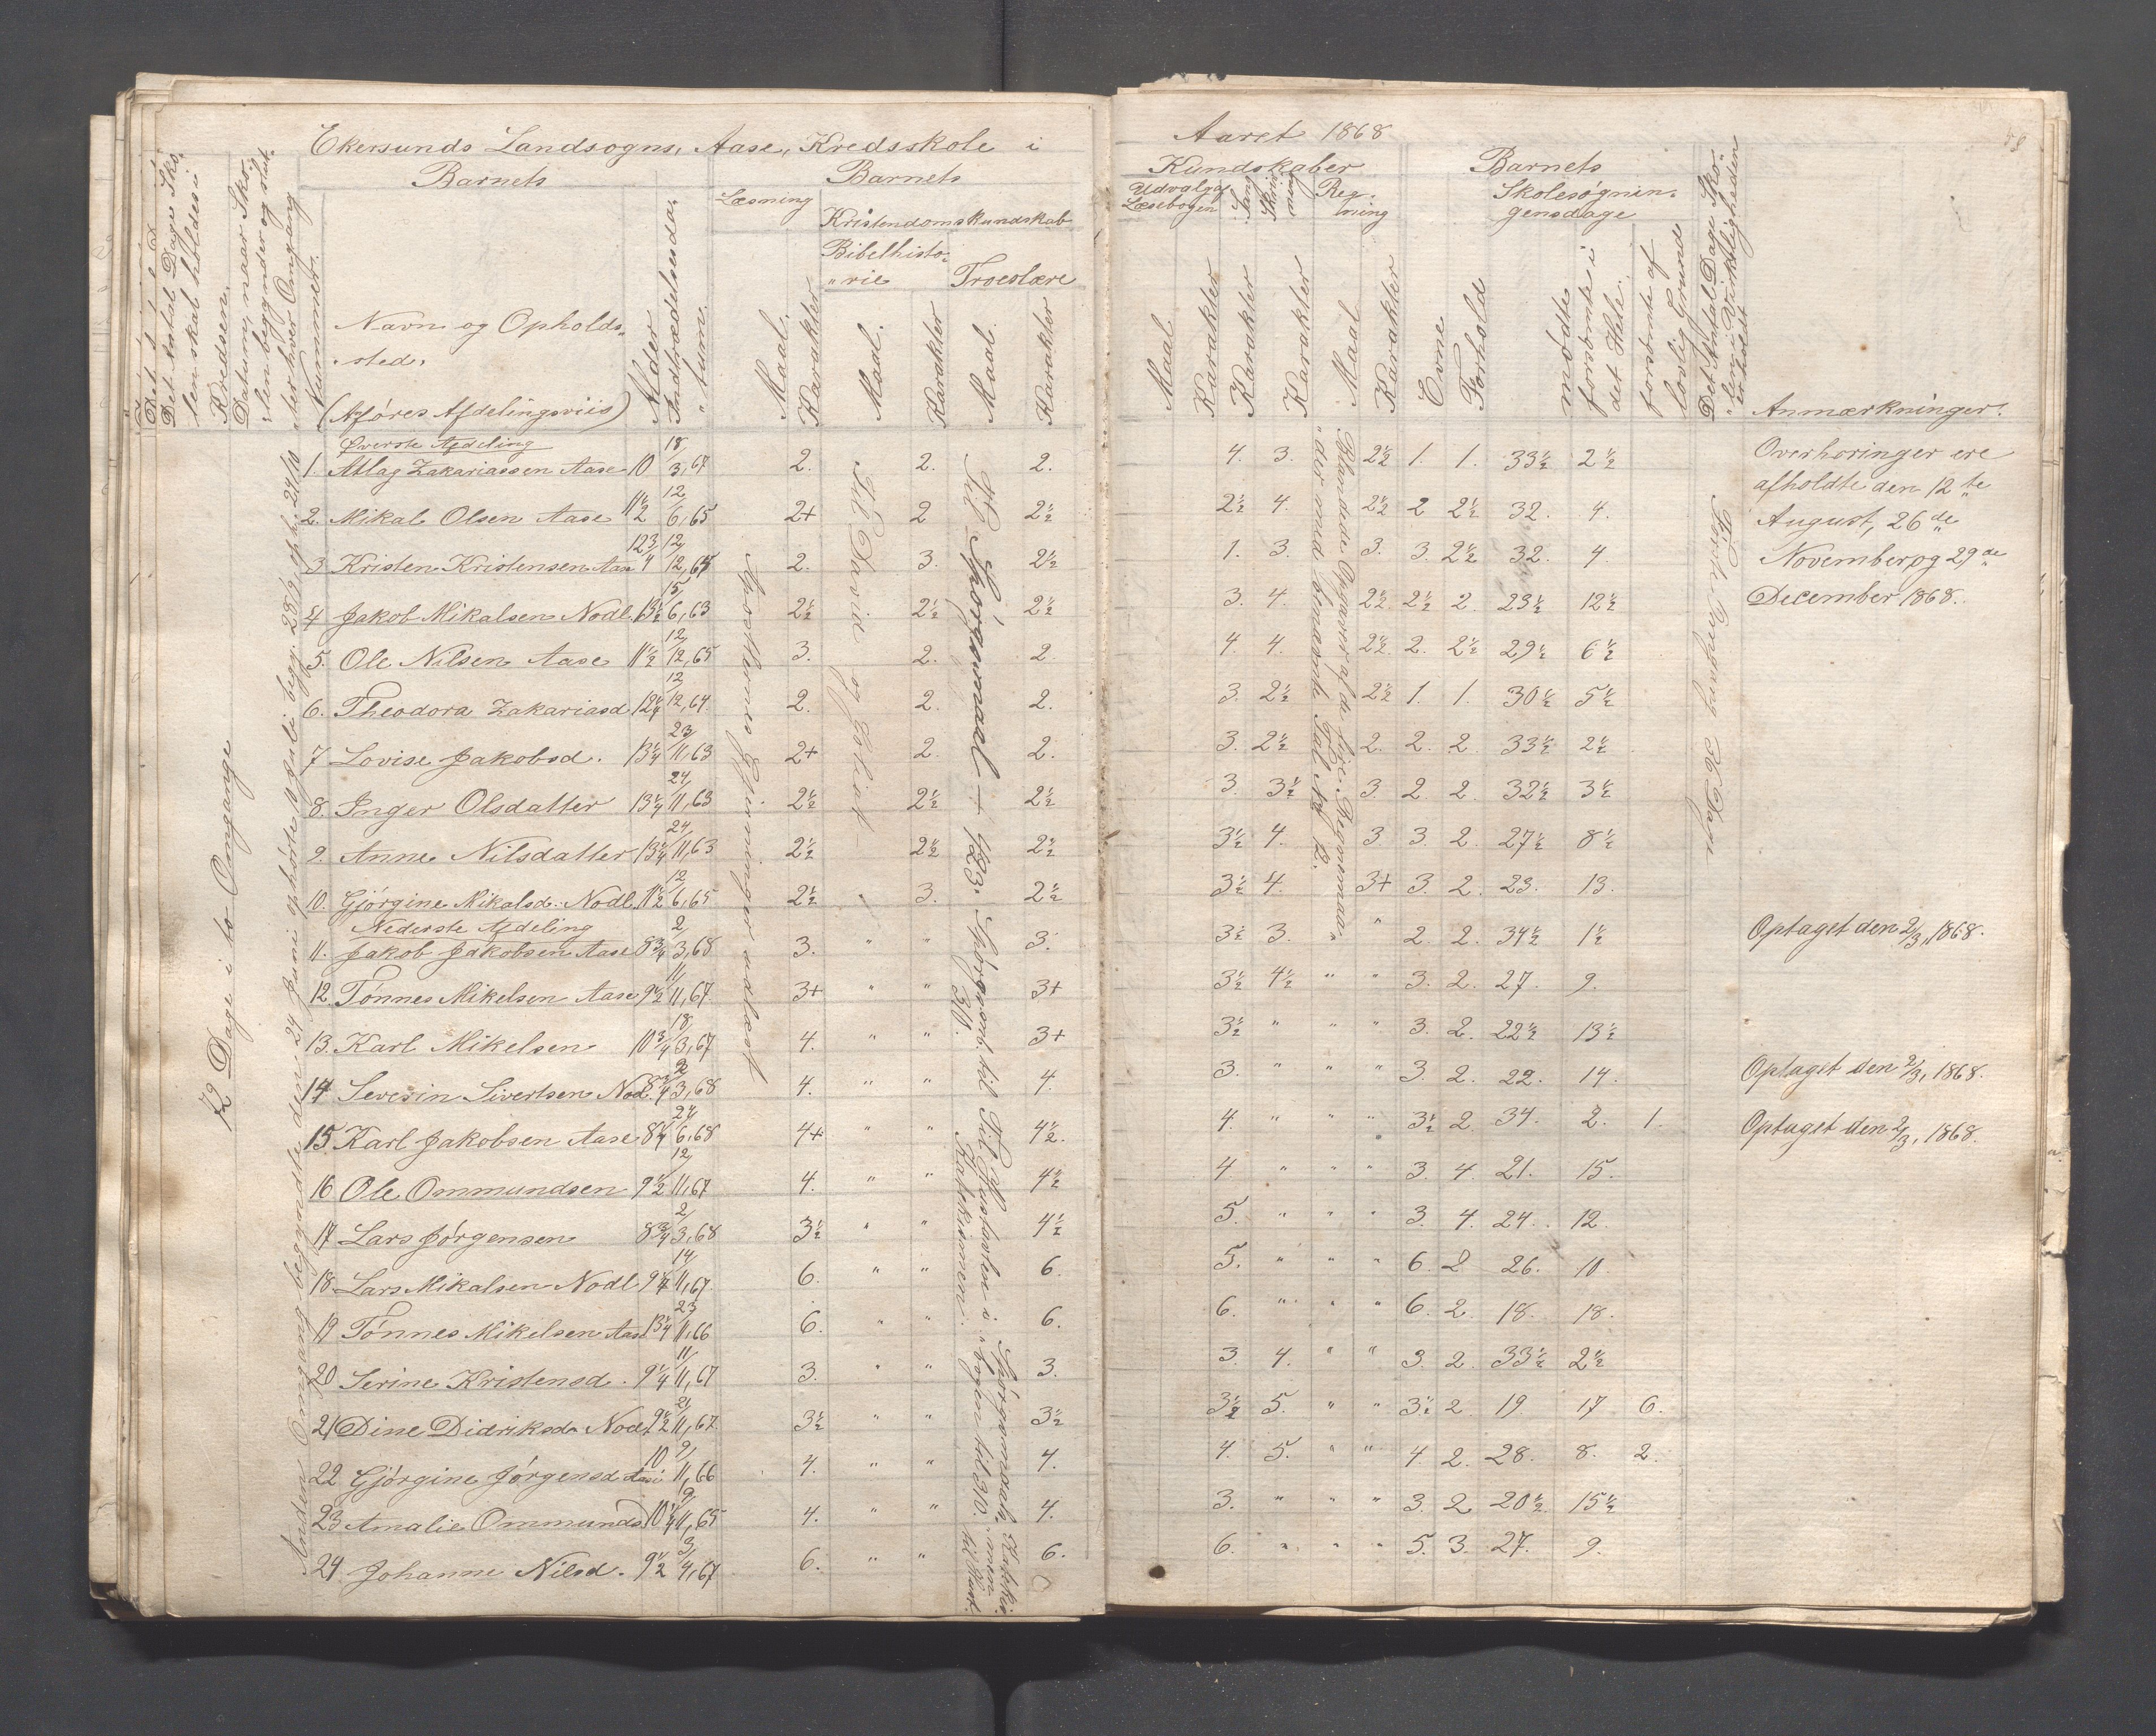 Ekersunds Landsogns, Aase, Kredsskole i
Aaret 1868
Barnets
Barnets
Kundskaber
Barnets
Læsning
Kristendomskundskab
Udvalg af Læsebogen
Sang
Skrivning
Regning
Skolesøgningensdage
Bibelhistorie
Troeslære
Det Antal Dage Skolen skal holdes i Kredsen.
Datum, naar Skolen begynder og slutter hver Omgang
Nummer.
Navn og Opholdssted.
(Afføres Afdelingsviis)
Alder
Indtrædelsesdatum.
Maal.
Karakter
Maal.
Karakter
Maal
Karakter
Maal
Karakter
Karakter
Karakter
Maal
Karakter
Evne
Forhold
mødte
forsømte i det Hele.
forsømte af lovlig Grund
Det Antal Dage Skolen i Virkeligheden er holdt
Anmærkninger.
72 Dage i to Omgange
Anden Omgang begyndte den 24 Juni ophørte 10 Juli begy. 28/9, oph. 24/10
Apostlernes Gjerninger udlæst
Til David og Goliat
Til Spörgsmaal 423. Spörgsmb. til 310.
Til Hustavlen i Katekismen.
Blandede Opgaver af de fire Regnemaader med benævnte Tal No 12.
Øverste Afdeling
1. Atlag Zakariassen Aase 10 18/3, 67 2. 2. 2. 4. 3. 2½ 1. 1. 33½ 2½
2. Mikal Olsen Aase 11½ 12/6, 65 2+ 2 2½ 2½ 4. 2½ 2 2½ 32. 4.
3 Kristen Kristensen Aase 12¾ 12/12, 64 2. 3. 2½ 1. 3. 3. 3. 2½ 32. 4.
4 Jakob Mikalsen Nodl. 13½ 15/6, 63 2½ 2½ 2½ 3. 4. 2½ 2½ 2. 23½ 12½
5. Ole Nilsen Aase 11½ 12/12, 65 3. 2. 2. 4. 4. 2½ 2. 2½ 29½ 6½
6. Theodora Zakariasd 12¼ 12/12, 64. 2. 2. 2. 3. 2½ 2½ 1. 1. 30½ 5½
7 Lovise Jakobsd. 13¼ 23/11, 63 2+ 2. 2. 3. 2½ 2. 2. 2. 33½ 2½
8. Inger Olsdatter 13¼ 24/11, 63 2½ 2½ 2½ 3. 3½ 3. 2. 2. 32½ 3½
9. Anne Nilsdatter 13¼ 24/11, 63 2½ 2½ 2½ 3½ 4. 3. 3. 2. 27½ 8½
10. Gjörgine Mikalsd. Nodl. 11½ 12/6, 65 2½ 3. 2½ 3½ 4. 3+ 3. 2. 23. 13.
Nederste Afdeling
11. Jakob Jakobsen Aase 8¾ 2/3, 68 3. " " 3. 3½ 3. " " 2. 2. 34½ 1½
12. Tönnes Mikelsen Aase 9½ 11/11, 67. 3+ " " 3+ 3½ 4½ " " 3. 2. 27. 9.
13. Karl Mikelsen 10¾ 18/3, 67 4. " " 3+ 3½ " " " 3. 2. 22½ 13½
14 Severin Sivertsen Nod. 8¾ 2/3, 68 4. " " 4. 3. " " " 3. 2. 22. 14.
15 Karl Jakobsen Aase 8¼ 24/6, 68 4+ " " 4½. 4. " " " 3½ 2. 34. 2. 1.
16 Ole Ommundsen 9½ 12/11, 67 4. " " 4½ 4. " " " 3. 4. 21. 15.
17 Lars Jörgensen 8¾ 2/3, 68 3½ " " 4½ 5. " " " 3. 4. 24. 12.
18. Lars Mikalsen Nodl 9¼ 14/11, 67. 6. " " 6. 5. " " " 6. 2 26. 10
19 Tönnes Mikelsen Aase 13¼ 23/11, 66 6. " " 6. 6. " " " 6. 2. 18. 18.
20 Serine Kristensd. 9¼ 11/11, 67 3. " " 3. 3. 4. " " 3. 2. 33½ 2½
21 Dine Didriksd. Nodl 9½ 21/11, 67. 3½ " " 3½ 3½ 5. " " 3½ 2. 19 17 6.
22 Gjörgine Jörgensd Aase 10 9/11, 66 4. " " 4. 4. 5. " " 4. 2. 28. 8. 2.
23 Amalie Ommunds 10¼ 9/11, 65 4. " " 4. 3. " " " 3. 2 20½ 15½
24 Johanne Nilsd. 9½ 3/4, 67 6. " " 6. 6. " " " 5. 3. 27. 9.
Overhoringer ere
afholdte den 12te
August, 26de
November og 29de
December 1868.
Optaget den 2/3, 1868.
Optaget den 2/3, 1868.
Optaget den 2/3, 1868.